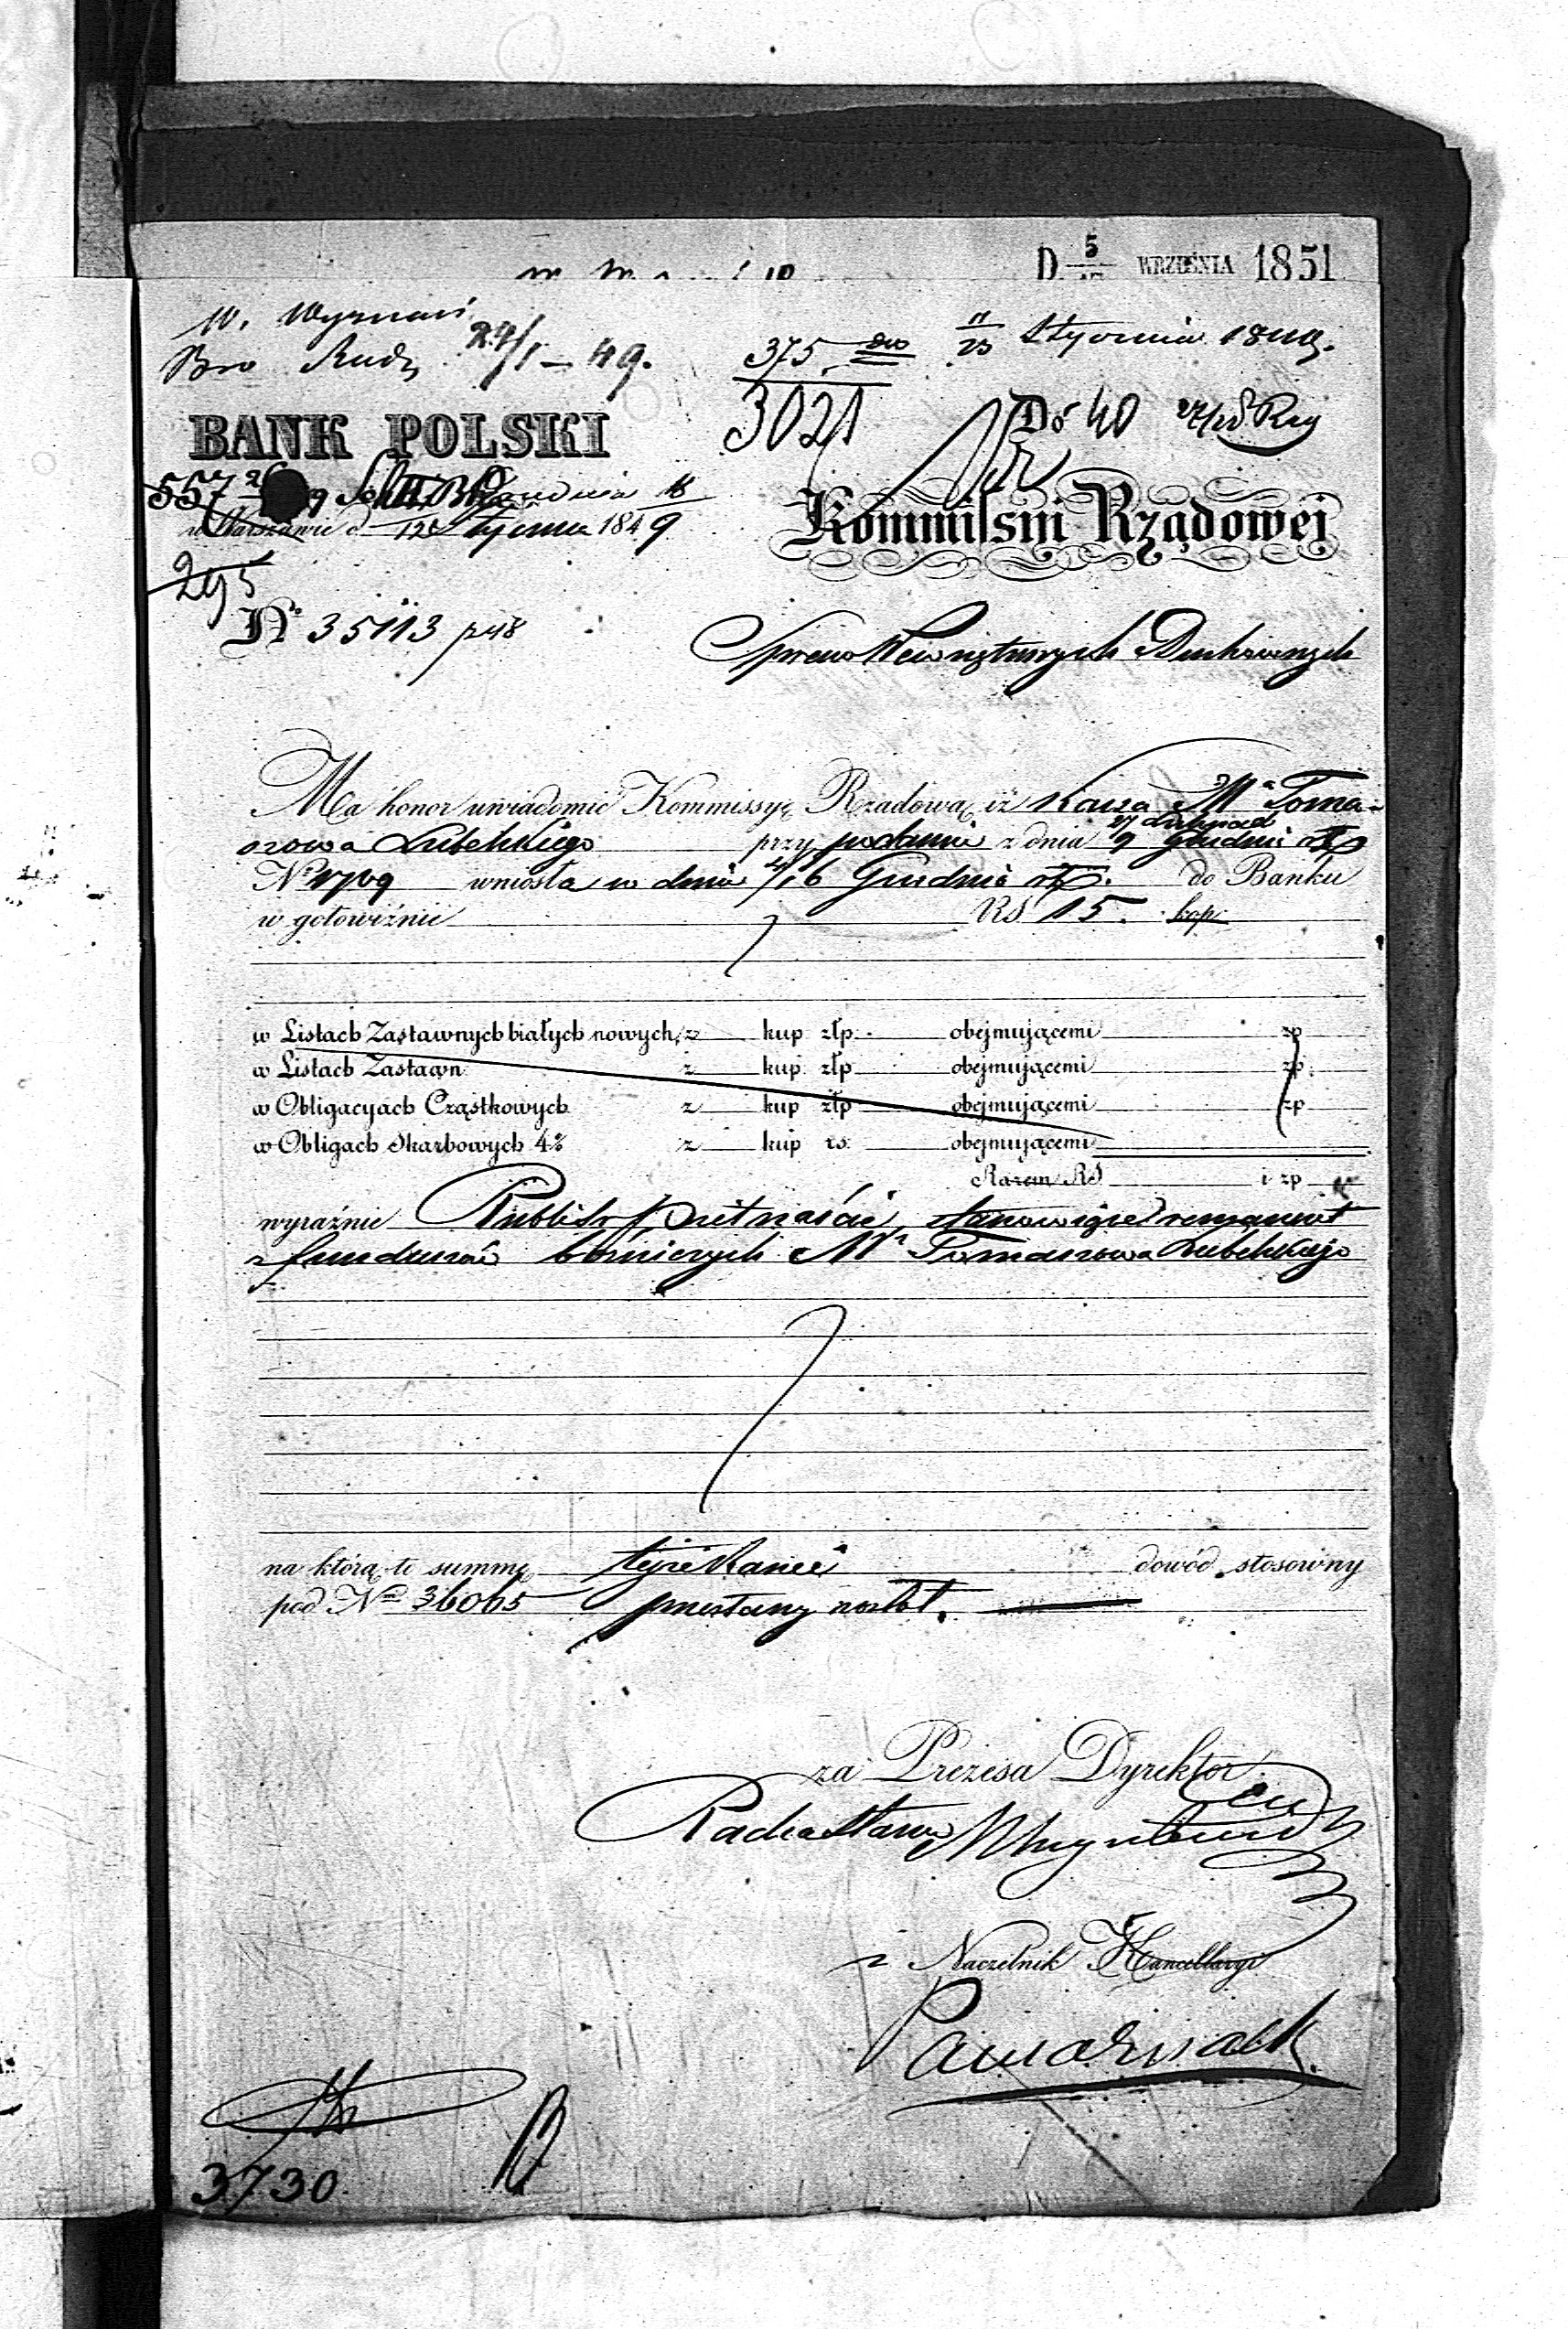 D 5/17 WRZEŚNIA 1851
W. Wyznań
24/1 – 49.
375. 11/23 Stycznia 1849.
3021
Do 40
BANK POLSKI
557
w Warszawie d. Stycznia 1849
295
No 35113 p48
Kommissyi Rządowej
Spraw Wewnętrznych Duchownych
Ma honor uwiadomić Kommissyę Rządową iż Kassa Mta Toma-
szowa Lubelskiego przy podaniu z dnia 27 Listopad / 9 Grudnia
No 1709 wniosła w dniu 4/16 Grudnia do Banku
w gotowiźnie RS 15. kop
w Listach Zastawnych białych nowych z kup złp. obejmującemi zp
w Listach Zastawn z kup złp obejmującemi zp.
w Obligacyach Cząstkowych z kup złp obejmującemi zp
w Obligach Skarbowych 4% z kup rs. obejmującemi
Razem RS i zp
wyraźnie Rubli sr. piętnaście, stanowiące remanent
z funduszów bóżniczych Mta Tomaszowa Lubelskiego
na którą to summę tejże Kassie dowód stosowny
pod No 36065 przesłany został.
za Prezesa Dyrektor
Radca Stanu
Naczelnik Kancellaryi
3730